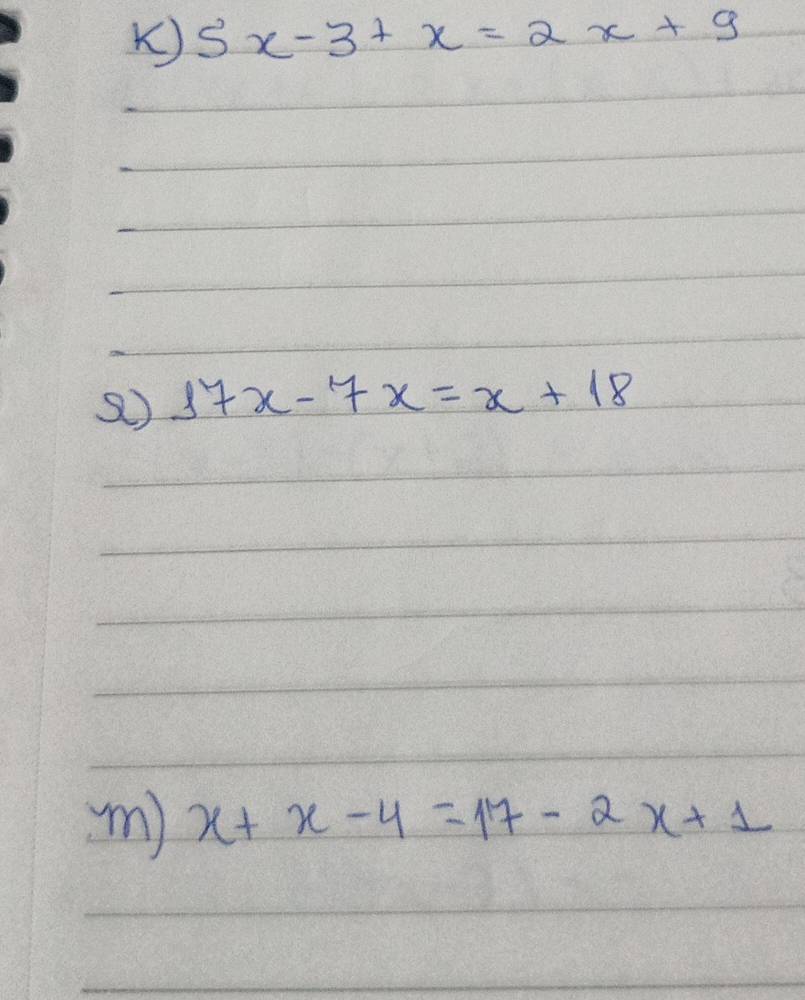 K) 5x - 3 + x = 2x + 9
l) 17x - 7x = x + 18
m) x + x - 4 = 17 - 2x + 1